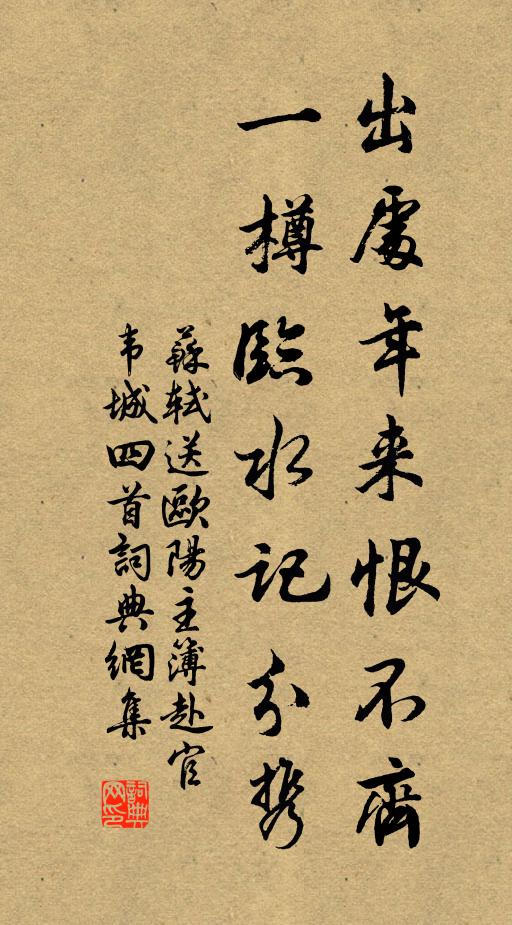 出處年来恨不齊
一樽臨水記分携
蘇軾送歐陽主簿赴官
韦城四首詞典網集
詞典
网印